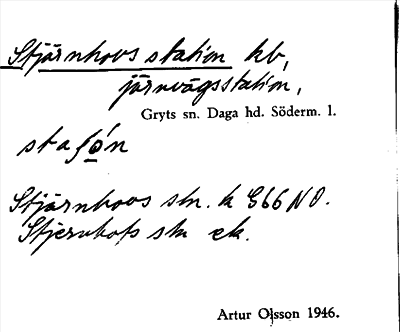 Stjärnhovs station hb,
järnvägsstation,
Gryts sn. Daga hd. Söderm. l.
staʃón
Stjärnhovs stn. k G66 NO.
Stjernhofs stn ek.
Artur Olsson 1946.